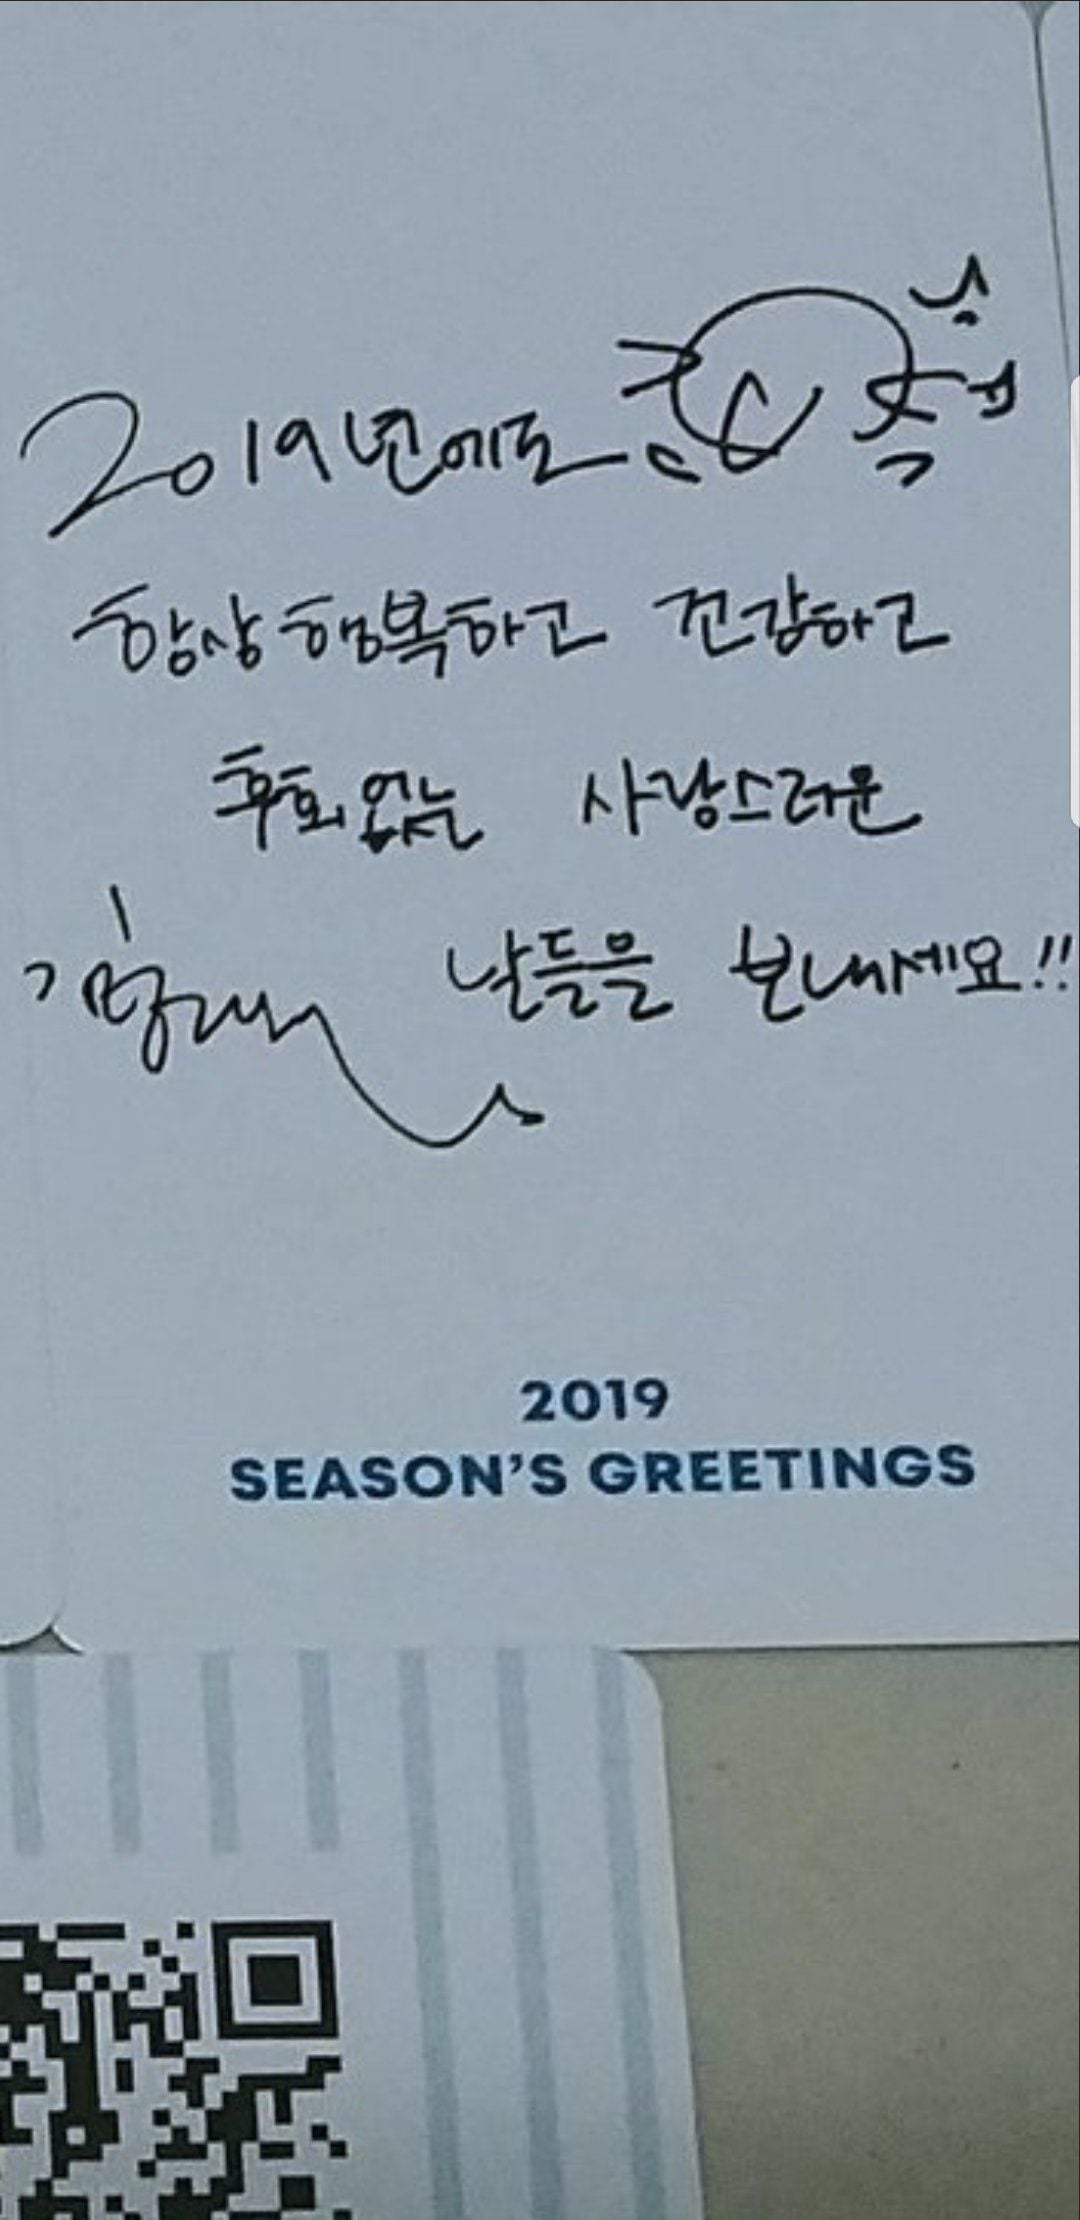 2019년에도
항상 행복하고 건강하고
후회 없는 사랑스러운
날들을 보내세요!!
2019
SEASON'S GREETINGS